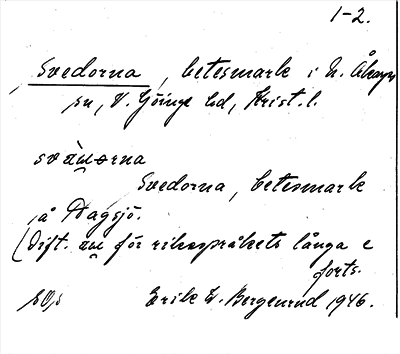 1-2.
Svedorna, betesmark i N. Åkarps
sn, V. Göinge hd, Krist. l.
Svedorna, betesmark
å Dagsjö.
(Dift. för riksspråkets långa e
forts.
Erik W. Bergenrud 1946.